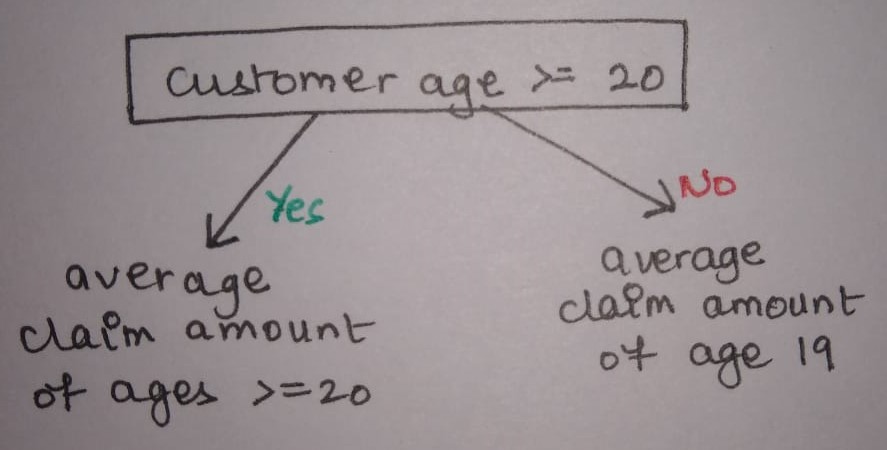 customer age >= 20
Yes
No
average
claim amount
of ages >=20
average
claim amount
of age 19